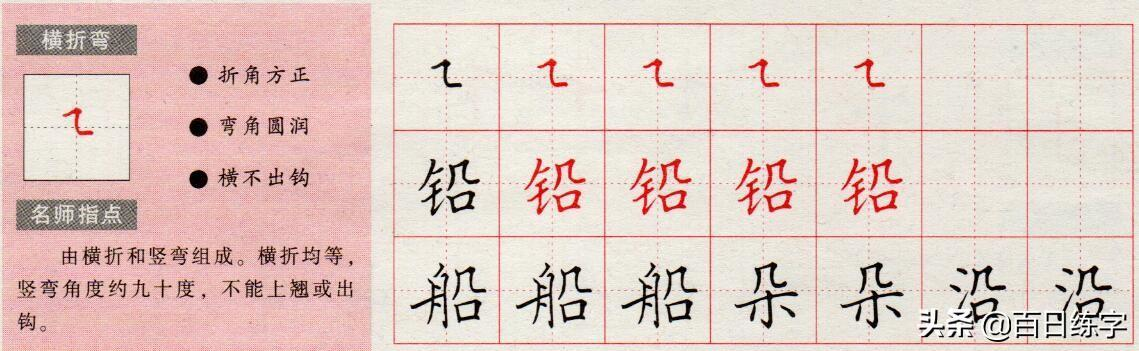 横折弯
㇍
折角方正
弯角圆润
横不出钩
名师指点
由横折和竖弯组成。横折均等，
竖弯角度约九十度，不能上翘或出
钩。
㇍ ㇍ ㇍ ㇍ ㇍
铅 铅 铅 铅 铅
船 船 船 朵 朵 沿 沿
头条 @百日练字